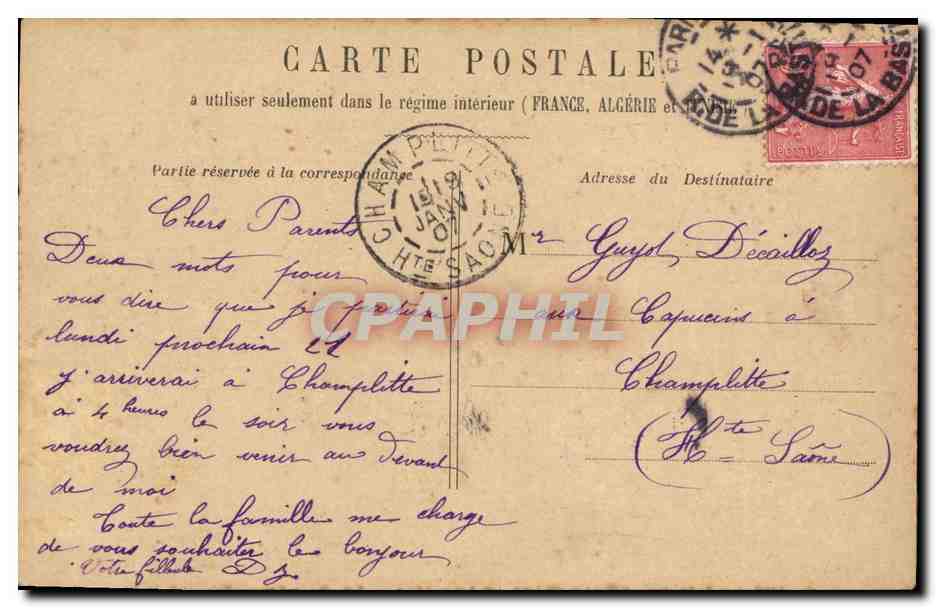 CARTE POSTALE
à utiliser seulement dans le régime intérieur (FRANCE, ALGÉRIE et
Partie réservée à la correspondance
Adresse du Destinataire
CHAMPLITTE
19
JANV
07
Hte SAONE
PARIS
14 *
19 -1
07
R. DE LA BASTILLE
FRANÇAISE
POSTES
Chers Parents
Deux mots pour
vous dire que je partirai
lundi prochain 21
j'arriverai à Champlitte
à 4 heures le soir vous
voudrez bien venir au devant
de moi
Toute la famille me charge
de vous souhaiter le bonjour
Votre filleule
Mr Guyot Décailloz
aux Capucins à
Champlitte
(Hte Saône)
CPAPHIL